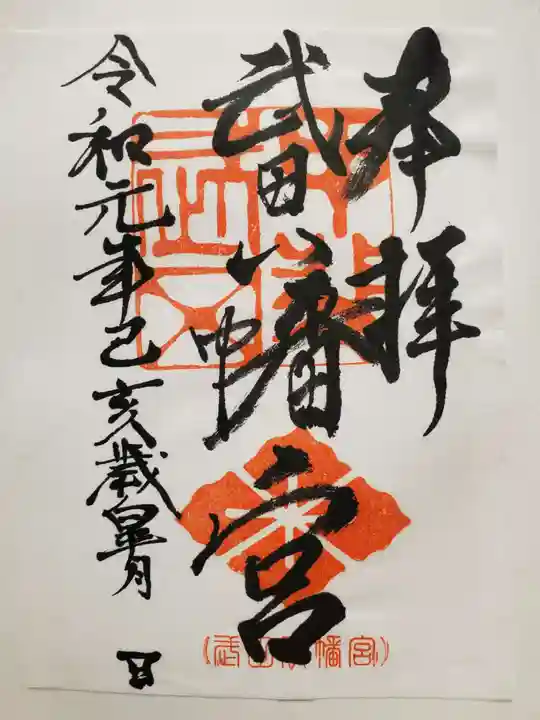 奉拝
武田八幡宮
令和元年己亥歳皐月
(武田八幡宮)